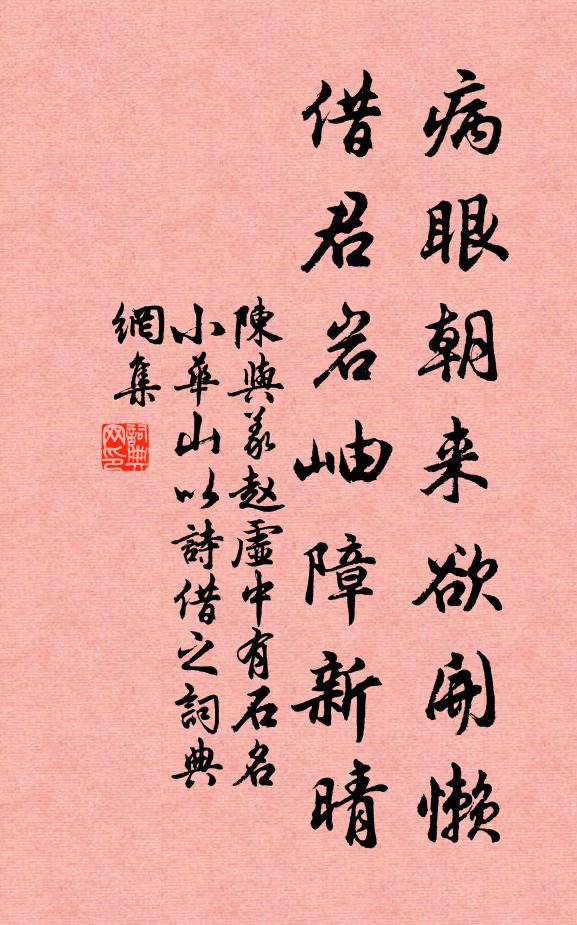 病眼朝来欲開懒
借君岩岫障新晴
陳與義赵虛中有石名
小華山以詩借之詞典
網集
詞典
网印